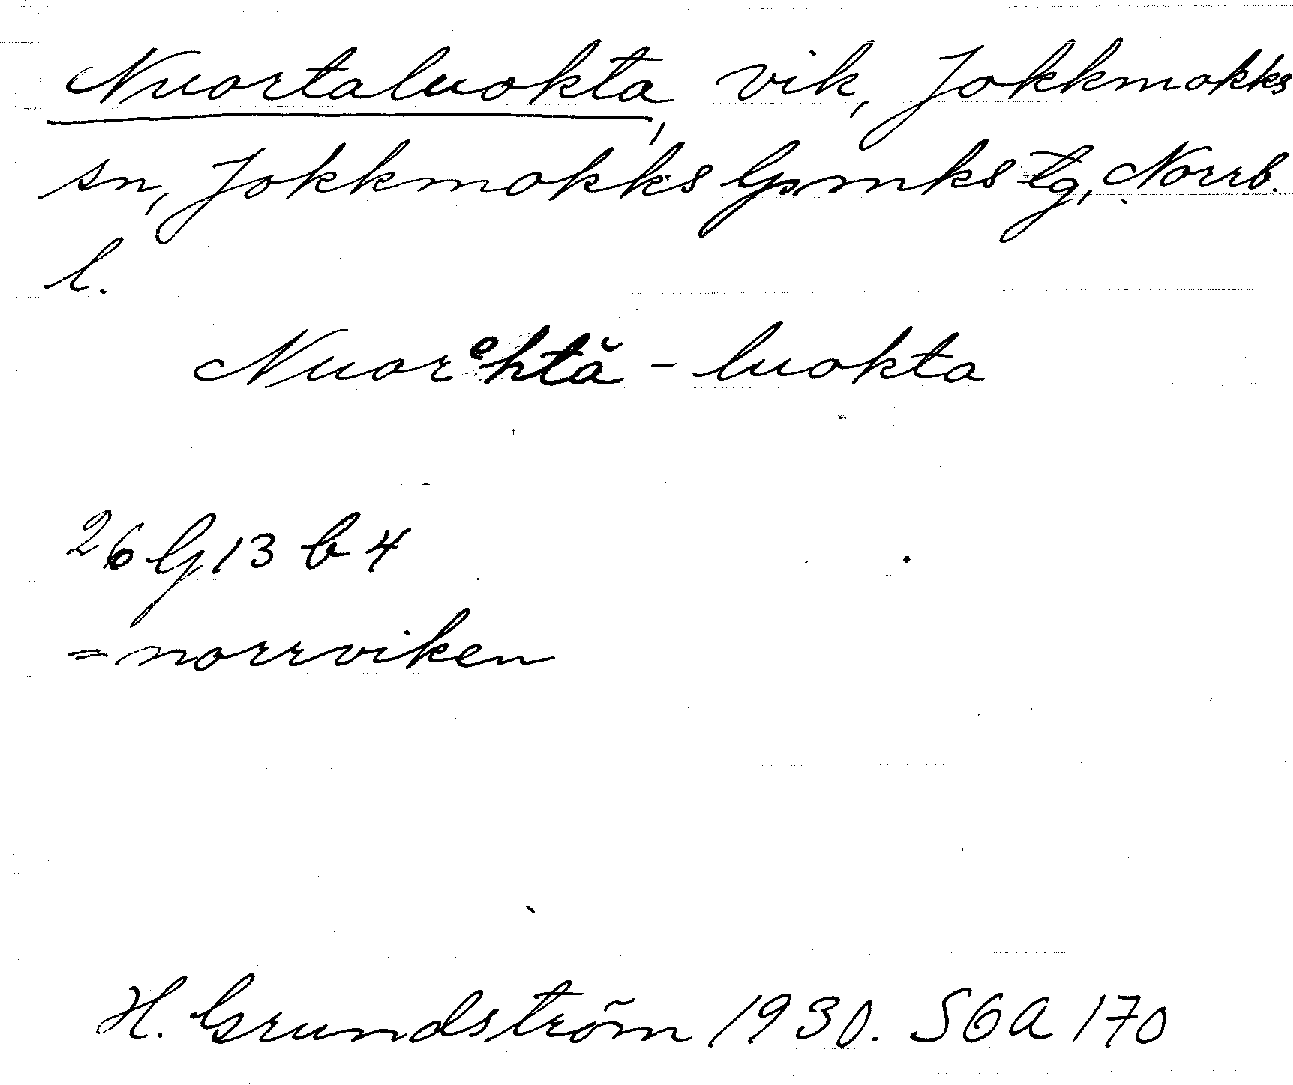 Nuortaluokta, vik, Jokkmokks
sn, Jokkmokks lpmks tg, Norrb.
l.
Nuorᵉhtă-luokta
26 G 13 b 4
= norrviken
H. Grundström 1930. SOA 170